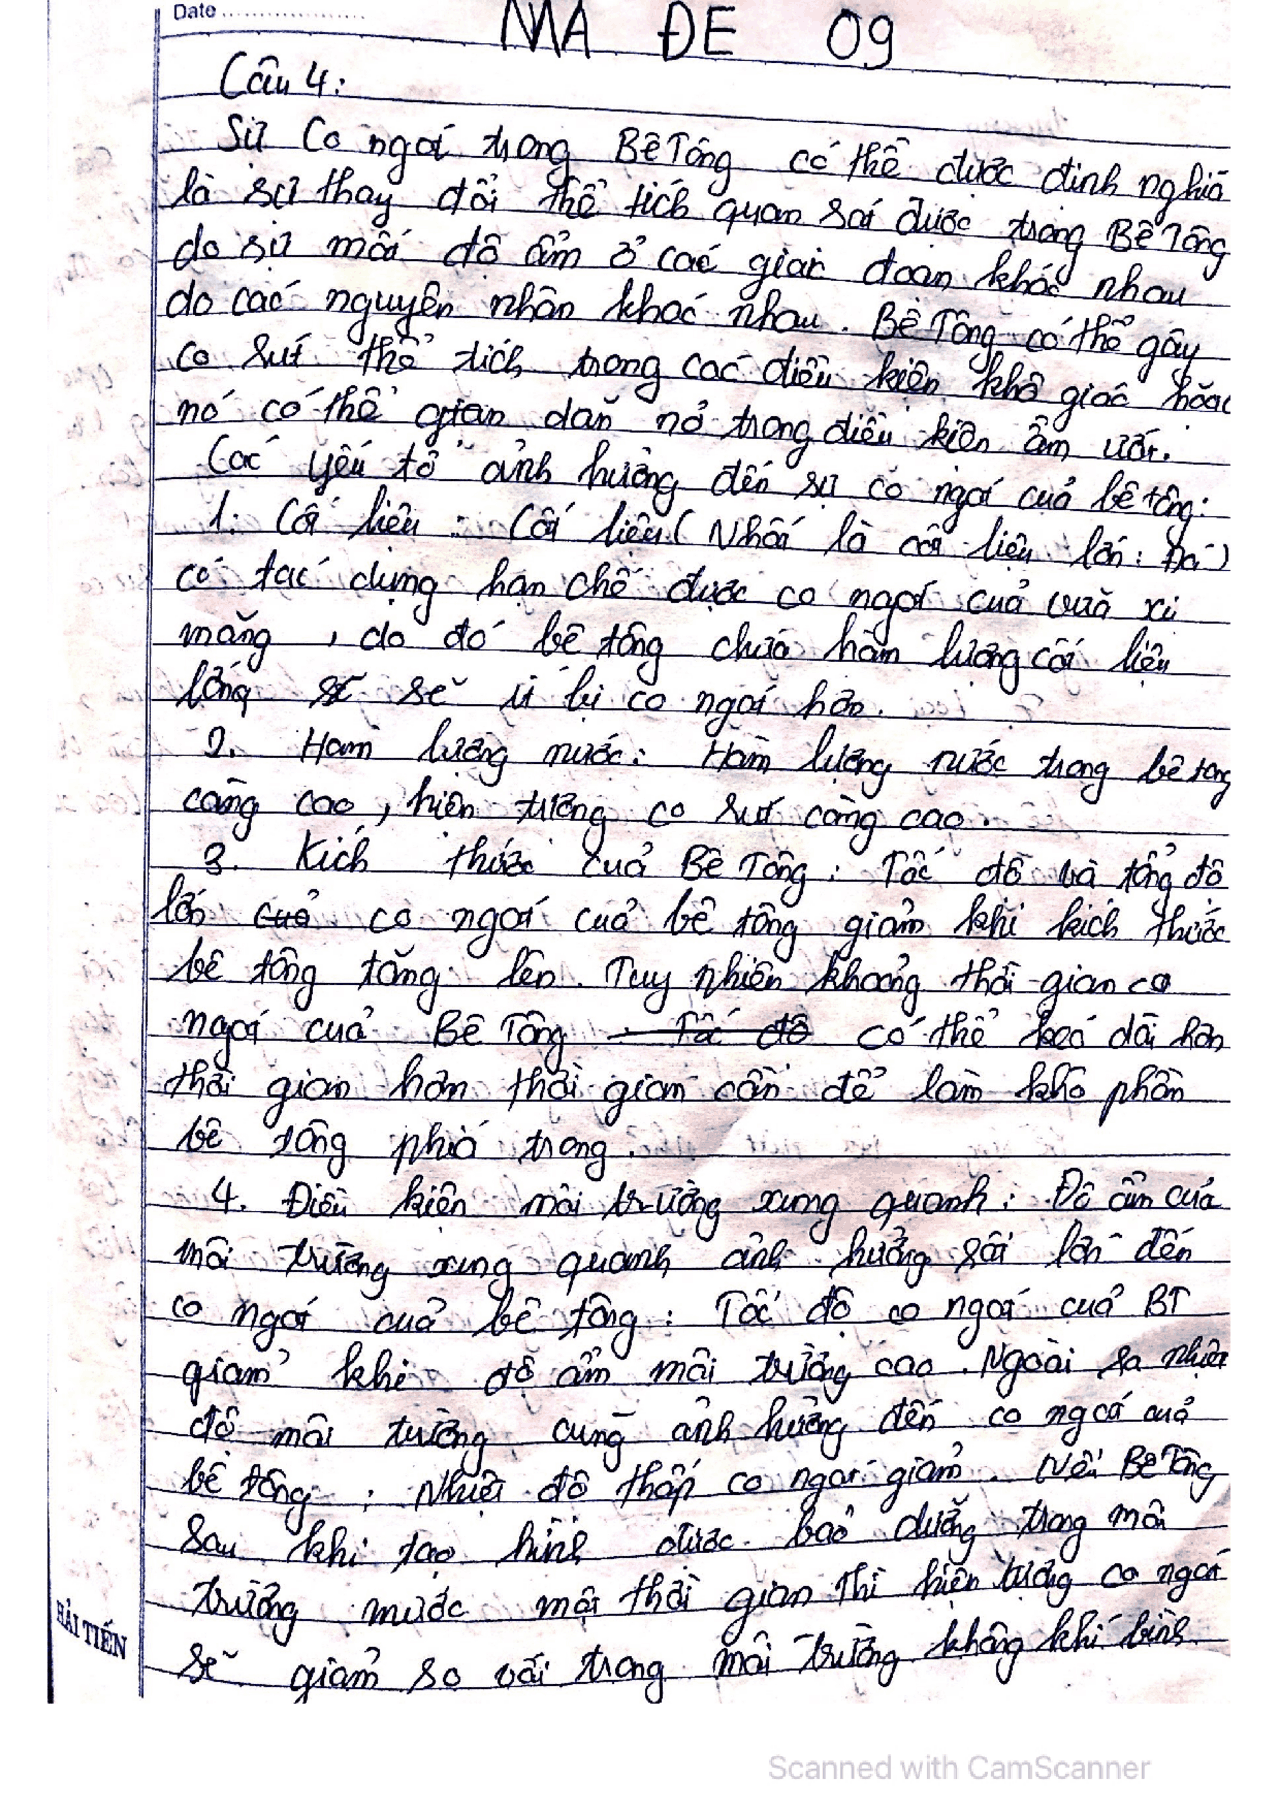 Date
MÃ ĐỀ 09
Câu 4:
Sự Co ngót trong BêTông có thể được định nghĩa
là sự thay đổi thể tích quan sát được trong BêTông
do sự mất độ ẩm ở các giai đoạn khác nhau
do các nguyên nhân khác nhau. BêTông có thể gây
co sút thể tích trong các điều kiện khô giác hoặc
nó có thể gian dãn nở trong điều kiện ẩm ướt.
Các yếu tố ảnh hưởng đến sự co ngót của bê tông:
1. Cốt liệu : Cốt liệu (Nhất là cốt liệu lớn: Đá)
có tác dụng hạn chế được co ngót của vữa xi
măng , do đó bê tông chứa hàm lượng cốt liệu
lớng sẽ ít bị co ngót hơn.
2. Hàm lượng nước: Hàm lượng nước trong bê tông
càng cao, hiện tượng co sút càng cao.
3. Kích thước của Bê Tông : Tốc độ và tổng độ
lớn của co ngót của bê tông giảm khi kích thước
bê tông tăng lên. Tuy nhiên khoảng thời gian co
ngót của Bê Tông Tốc độ có thể kéo dài hơn
thời gian hơn thời gian cần để làm khô phần
bê tông phía trong.
4. Điều kiện môi trường xung quanh: Độ ẩm của
môi trường xung quanh ảnh hưởng rất lớn đến
co ngót của bê tông : Tốc độ co ngót của BT
giảm khi độ ẩm môi trường cao. Ngoài ra nhiệt
độ môi trường cũng ảnh hưởng đến co ngót của
bê tông : Nhiệt độ thấp co ngót giảm. Nếu BêTông
sau khi tạo hình được bảo dưỡng trong môi
trường nước một thời gian thì hiện tượng co ngót
sẽ giảm so với trong môi trường không khí bình
HẢI TIẾN
Scanned with CamScanner